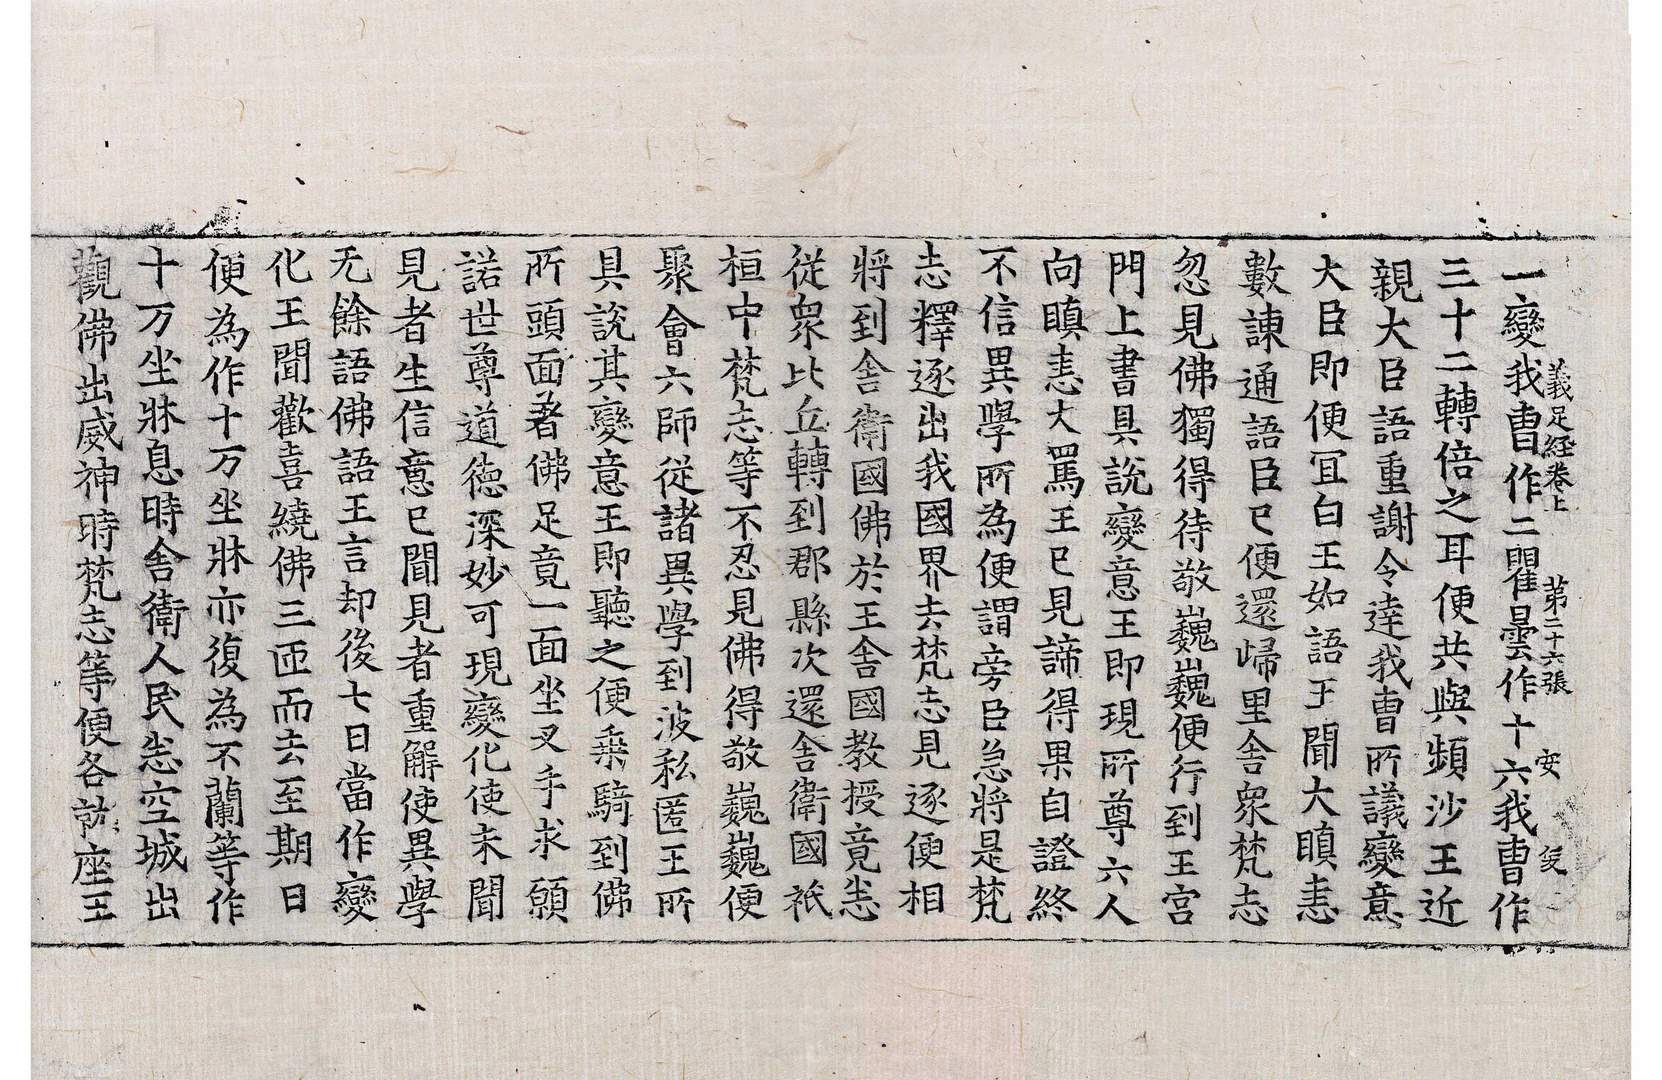 義足經卷上　第二十六張　安
一變我曹作二瞿曇作十六我曹作
三十二轉倍之耳便共與頻沙王近
親大臣語重謝令達我曹所議變意
大臣即便冝白王如語王聞大瞋恚
數諫通語臣已便還歸里舍衆梵志
忽見佛獨得待敬巍巍便行到王宮
門上書具說變意王即現所尊六人
向瞋恚大罵王已見諦得果自證終
不信異學所為便謂旁臣急將是梵
志釋逐出我國界去梵志見逐便相
將到舍衛國佛於王舍國教授竟恚
從衆比丘轉到郡縣次還舍衛國祇
桓中梵志等不忍見佛得敬巍巍便
聚會六師從諸異學到波私匿王所
具說其變意王即聽之便乗騎到佛
所頭面著佛足竟一面坐叉手求願
諾世尊道德深妙可現變化使未聞
見者生信意已聞見者重解使異學
无餘語佛語王言却後七日當作變
化王聞歡喜繞佛三匝而去至期日
便為作十万坐牀亦復為不蘭等作
十万坐牀息時舍衛人民恚空城出
觀佛出威神時梵志等便各就座王